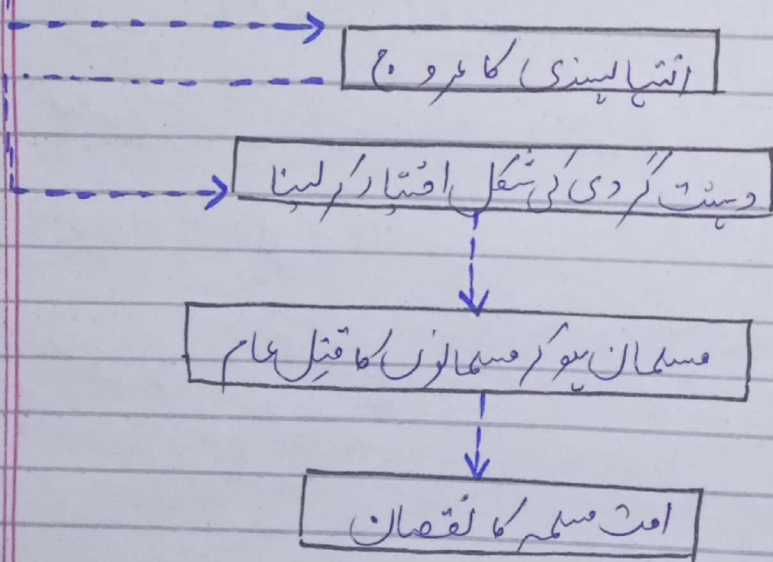 انتہا پسندی کا عروج
دہشت گردی کی شکل اختیار کر لینا
مسلمان ہو کر مسلمانوں کا قتل عام
امت مسلمہ کا نقصان